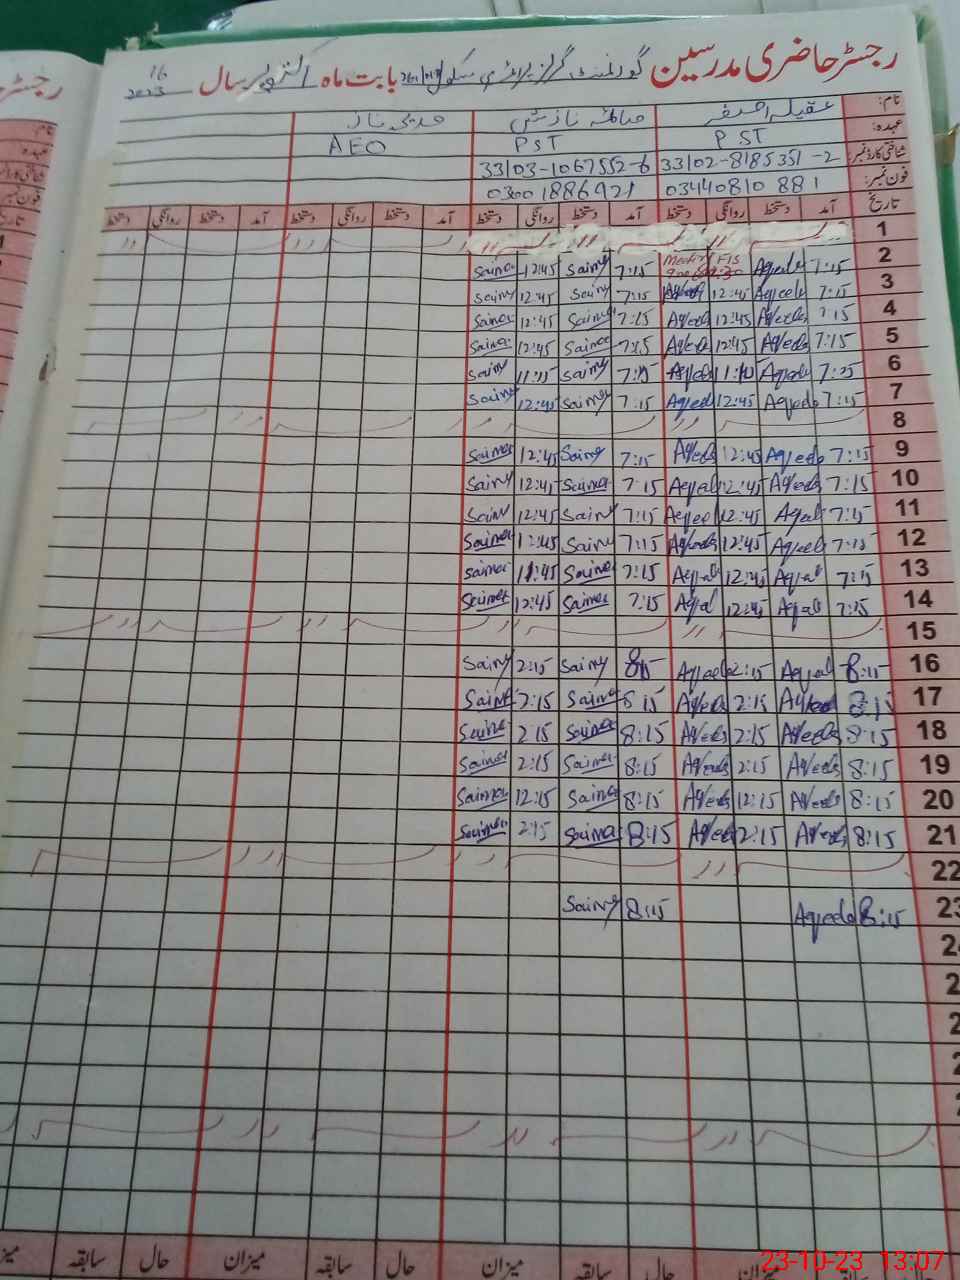 رجسٹر حاضری مدرسین گورنمنٹ گرلز پرائمری سکول بابت ماہ اکتوبر سال 2023
16
نام: عقیلہ اصغر صائمہ نازش مدیحہ ناز
عہدہ: PST PST AEO
شناختی کارڈ نمبر: 33102-8185351-2 33103-1067552-6
فون نمبر: 03440810881 03001886921
تاریخ آمد دستخط روانگی دستخط آمد دستخط روانگی دستخط آمد دستخط روانگی دستخط آمد دستخط روانگی دستخط
1
2 7:15 Aqeela Meeting 7:15 Saima 12:45 Saima
3 7:15 Aqeela 12:45 7:15 Saima 12:45 Saima
4 7:15 Aqeela 12:45 Aqeela 7:15 Saima 12:45 Saima
5 7:15 Aqeela 12:45 Aqeela 7:15 Saima 12:45 Saima
6 7:15 Aqeela Aqeela 7:15 Saima 11:15 Saima
7 7:15 Aqeela 12:45 Aqeela 7:15 Saima 12:45 Saima
8
9 7:15 Aqeela 12:45 Aqeela 7:15 Saima 12:45 Saima
10 7:15 Aqeela 12:45 Aqeela 7:15 Saima 12:45 Saima
11 7:15 Aqeela 12:45 Aqeela 7:15 Saima 12:45 Saima
12 7:15 Aqeela 12:45 Aqeela 7:15 Saima 12:45 Saima
13 7:15 Aqeela 12:45 Aqeela 7:15 Saima 11:45 Saima
14 7:15 Aqeela 12:45 Aqeela 7:15 Saima 12:45 Saima
15
16 8:15 Aqeela 2:15 Aqeela 8:15 Saima 2:15 Saima
17 8:15 Aqeela 2:15 Aqeela 8:15 Saima 2:15 Saima
18 8:15 Aqeela 2:15 Aqeela 8:15 Saima 2:15 Saima
19 8:15 Aqeela 2:15 Aqeela 8:15 Saima 2:15 Saima
20 8:15 Aqeela 12:15 Aqeela 8:15 Saima 12:15 Saima
21 8:15 Aqeela 2:15 Aqeela 8:15 Saima 2:15 Saima
22
23 8:15 Aqeela 8:15 Saima
میزان حال سابقہ میزان حال سابقہ میزان حال سابقہ
23-10-23 13:07